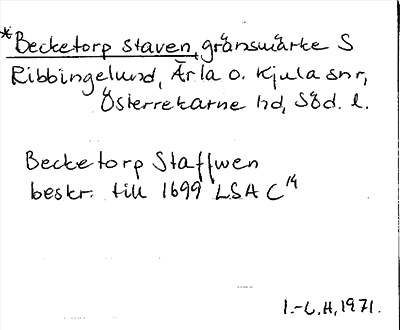 *Becketorp staven, gränsmärke S
Ribbingelund, Ärla o. Kjula snr,
Österrekarne hd, Söd. l.
Becketorp Staffwen
beskr. till 1699 LSA C14
I.-L.H, 1971.